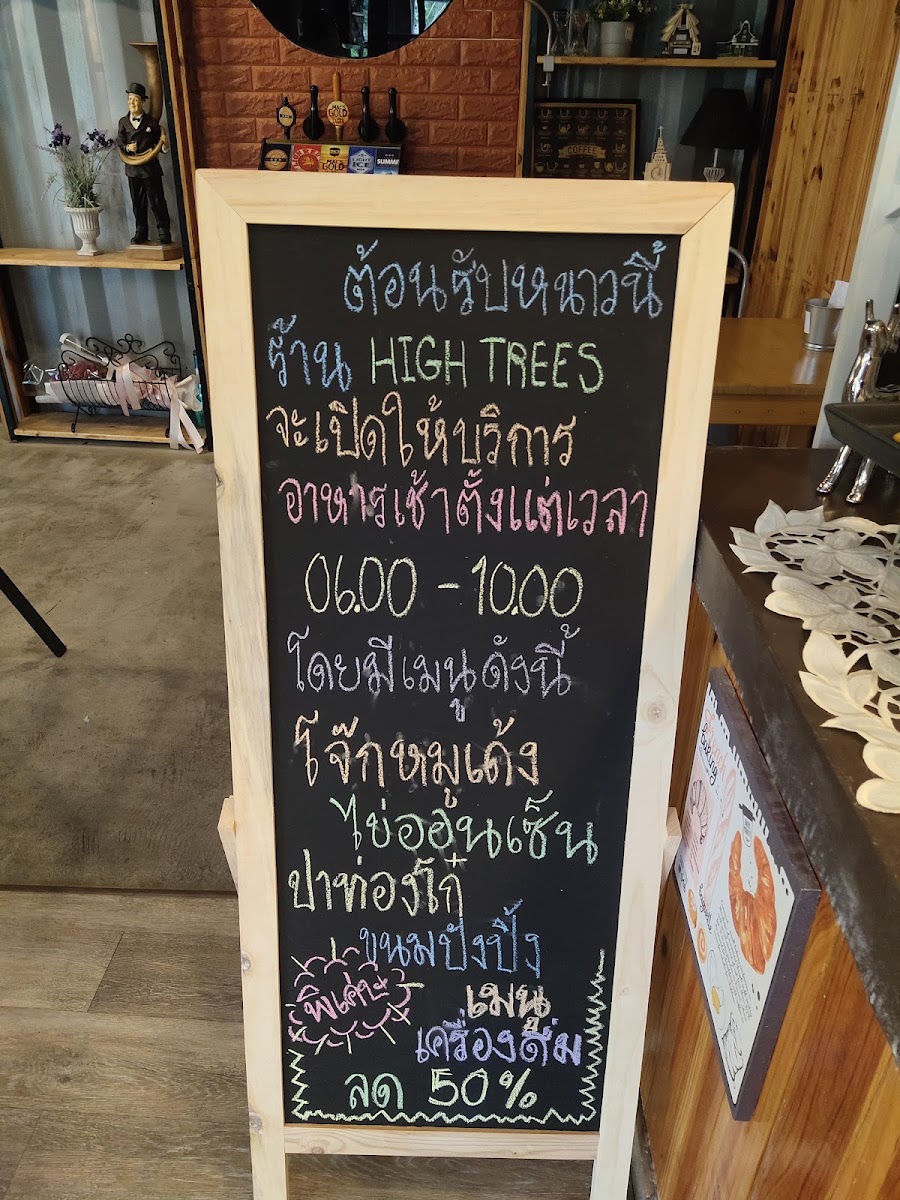 ต้อนรับหนาวนี้
ร้าน HIGH TREES
จะเปิดให้บริการ
อาหารเช้าตั้งแต่เวลา
06.00 - 10.00
โดยมีเมนูดังนี้
โจ๊กหมูเด้ง
ไข่ออนเซ็น
ปาท่องโก๋
ขนมปังปิ้ง
พิเศษ
เมนู
เครื่องดื่ม
ลด 50%
GOLD
LIGHT ICE
SUMMIT
COFFEE
baking